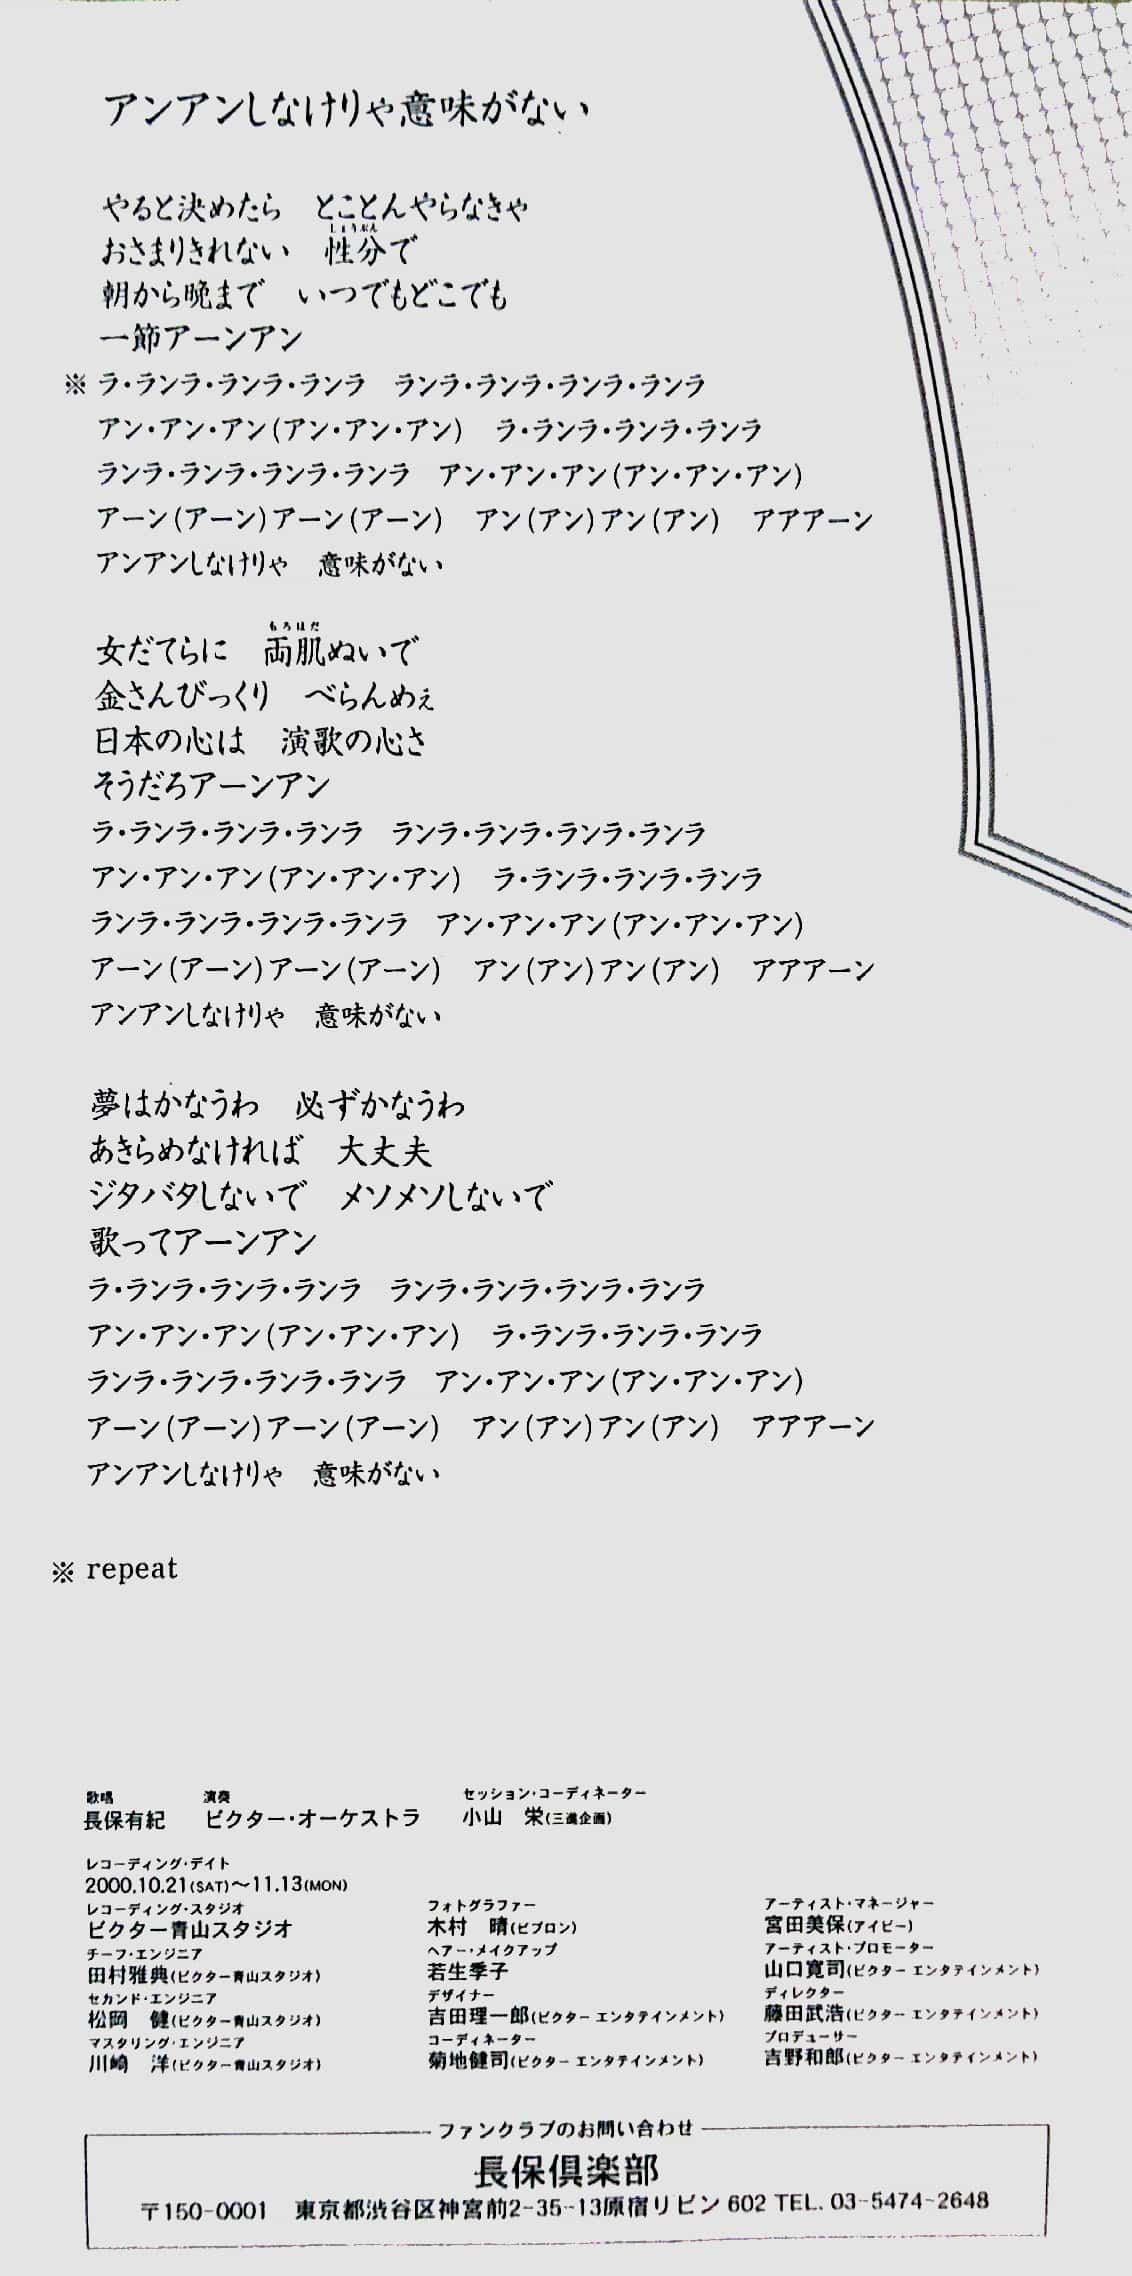 アンアンしなけりゃ意味がない
やると決めたら　とことんやらなきゃ
おさまりきれない　性分で
しょうぶん
朝から晩まで　いつでもどこでも
一節アーンアン
※ ラ・ランラ・ランラ・ランラ　ランラ・ランラ・ランラ・ランラ
アン・アン・アン(アン・アン・アン)　ラ・ランラ・ランラ・ランラ
ランラ・ランラ・ランラ・ランラ　アン・アン・アン(アン・アン・アン)
アーン(アーン)アーン(アーン)　アン(アン)アン(アン)　アアアーン
アンアンしなけりゃ　意味がない
もろはだ
女だてらに　両肌ぬいで
金さんびっくり　べらんめぇ
日本の心は　演歌の心さ
そうだろアーンアン
ラ・ランラ・ランラ・ランラ　ランラ・ランラ・ランラ・ランラ
アン・アン・アン(アン・アン・アン)　ラ・ランラ・ランラ・ランラ
ランラ・ランラ・ランラ・ランラ　アン・アン・アン(アン・アン・アン)
アーン(アーン)アーン(アーン)　アン(アン)アン(アン)　アアアーン
アンアンしなけりゃ　意味がない
夢はかなうわ　必ずかなうわ
あきらめなければ　大丈夫
ジタバタしないで　メソメソしないで
歌ってアーンアン
ラ・ランラ・ランラ・ランラ　ランラ・ランラ・ランラ・ランラ
アン・アン・アン(アン・アン・アン)　ラ・ランラ・ランラ・ランラ
ランラ・ランラ・ランラ・ランラ　アン・アン・アン(アン・アン・アン)
アーン(アーン)アーン(アーン)　アン(アン)アン(アン)　アアアーン
アンアンしなけりゃ　意味がない
※ repeat
歌唱
長保有紀
演奏
ビクター・オーケストラ
セッション・コーディネーター
小山　栄(三進企画)
レコーディング・デイト
2000.10.21(SAT)～11.13(MON)
レコーディング・スタジオ
ビクター青山スタジオ
チーフ・エンジニア
田村雅典(ビクター青山スタジオ)
セカンド・エンジニア
松岡　健(ビクター青山スタジオ)
マスタリング・エンジニア
川崎　洋(ビクター青山スタジオ)
フォトグラファー
木村　晴(ビブロン)
ヘアー・メイクアップ
若生季子
デザイナー
吉田理一郎(ビクター エンタテインメント)
コーディネーター
菊地健司(ビクター エンタテインメント)
アーティスト・マネージャー
宮田美保(アイビー)
アーティスト・プロモーター
山口寛司(ビクター エンタテインメント)
ディレクター
藤田武浩(ビクター エンタテインメント)
プロデューサー
吉野和郎(ビクター エンタテインメント)
ファンクラブのお問い合わせ
長保倶楽部
〒150-0001　東京都渋谷区神宮前2-35-13原宿リビン 602 TEL. 03-5474-2648